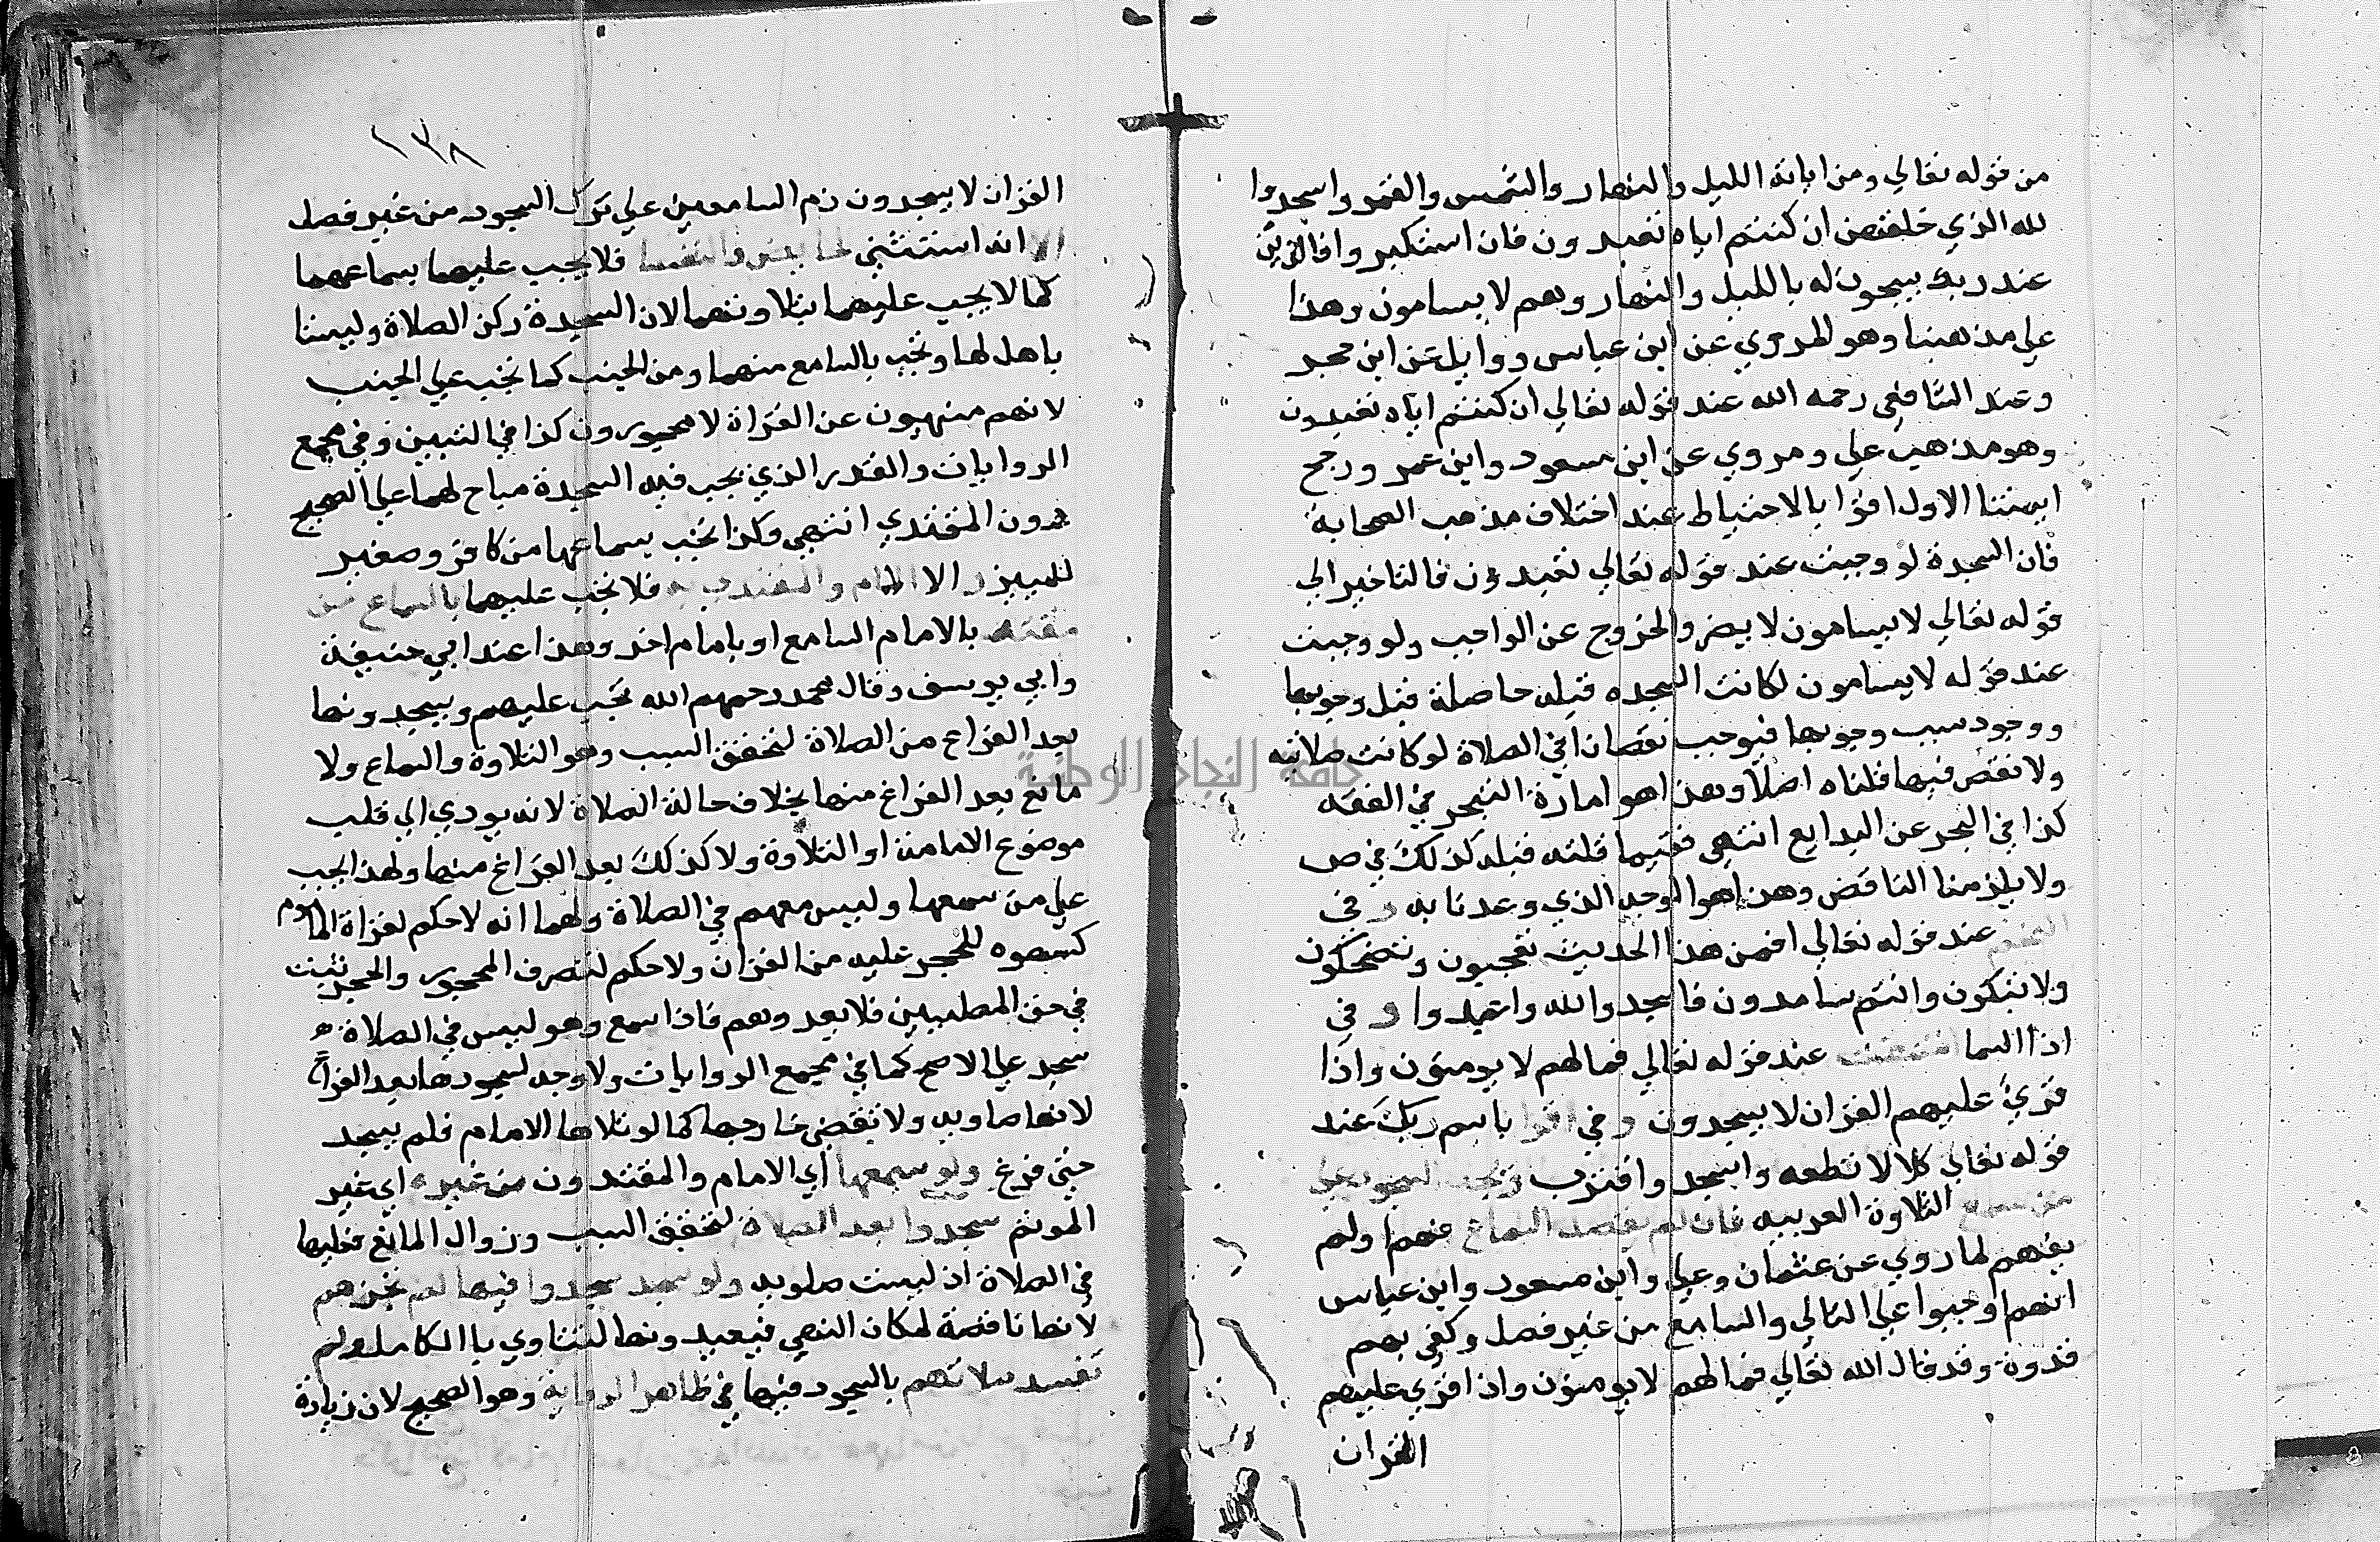 من قوله تعالي ومن اياته الليل والنهار والشمس والقمر واسجدوا
لله الذي خلقهن ان كنتم اياه تعبدون فان استكبروا فالذين
عند ربك يسبحون له بالليل والنهار وهم لا يسامون وهذا
علي مذهبنا وهو المروي عن ابن عباس ووايل بن حجر
وعند الشافعي رحمه الله عند قوله تعالي ان كنتم اياه تعبدون
وهو مذهب علي ومروي عن ابن مسعود وابن عمر ورجح
ايمتنا الاول اخذا بالاحتياط عند اختلاف مذهب الصحابة
فان السجدة لو وجبت عند قوله تعالي تعبدون فالتاخير الي
قوله تعالي لا يسامون لا يضر والخروج عن الواجب ولو وجبت
عند قوله لا يسامون لكانت السجده قبله حاصلة قبل وجوبها
ووجود سبب وجوبها فيوجب نقصانا في الصلاة لو كانت صلاتيه
ولا نقص فيها قلناه اصلا وهذا هو امارة التبحر في الفقه
كذا في البحر عن البدايع انتهي فقيما قلته قبله كذلك في ص
ولا يلزمنا التناقض وهذا هو الوجه الذي وعدنا به وفي
النجم عند قوله تعالي افمن هذا الحديث تعجبون وتضحكون
ولا تبكون وانتم سامدون فاسجدوا لله واعبدوا وفي
اذا السما انشقت عند قوله تعالي فما لهم لا يومنون واذا
قرئ عليهم القران لا يسجدون وفي اقرا باسم ربك عند
قوله تعالي كلا لا تطعه واسجد واقترب وتجب السجود علي
من سمع التلاوة العربيه فان لم يقصد السماع فهم او لم
يفهم لما روي عن عثمان وعلي وابن مسعود وابن عباس
انهم اوجبوا علي التالي والسامع من غير فصل وكفي بهم
قدوة وقد قال الله تعالي فما لهم لا يومنون واذا قري عليهم
القران
١٣٨
القران لا يسجدون ذم السامعين علي ترك السجود من غير فصل
الا انه استثني الحايض والنفسا فلا يجب عليهما بسماعهما
كما لا يجب عليهما بتلاوتهما لان السجدة ركن الصلاة وليستا
باهل لها وتجب بالسامع منهما ومن الجنب كما تجب علي الجنب
لانهم منهيون عن القراة لا محجورون كذا في التبيين وفي مجمع
الروايات والقدر الذي يجب فيه السجدة مباح لهما علي الصحيح
دون المقتدي انتهي وكذا تجب بسماعها من كافر وصغير
مميز الا الامام والمقتدي به فلا تجب عليهما بالسماع من
مقتد بالامام السامع او بامام اخر وهذا عند ابي حنيفة
وابي يوسف وقال محمد رحمهم الله تجب عليهم ويسجدونها
بعد الفراغ من الصلاة لتحقق السبب وهو التلاوة والسماع ولا
مانع بعد الفراغ منها بخلاف حالة الصلاة لانه يودي الي قلب
موضوع الامامة او التلاوة ولا كذلك بعد الفراغ منها ولهذا تجب
علي من سمعها وليس معهم في الصلاة ولهما انه لا حكم لقراة الماموم
للحجر عليه من القران ولا حكم لتصرف المحجور والحجر ثبت
في حق المصليين فلا يعدوهم فاذا سمع وهو ليس في الصلاة
سجد علي الاصح كما في مجمع الروايات ولا وجه لسجودها بعد الفراغ
لانها صلويه ولا تقضي خارجها كما لو تلاها الامام فلم يسجد
حتي فرغ ولو سمعها اي الامام والمقتدون من غيره اي غير
الموتم سجدوا بعد الصلاة لتحقق السبب وزوال المانع من فعلها
في الصلاة اذ ليست صلويه ولو سجدوا فيها لم تجزهم
لانها ناقصة لمكان النهي فيعيدونها لتتاوي باالكامل ولم
تفسد صلاتهم بالسجود فيها في ظاهر الرواية وهو الصحيح لان زيادة
جامعة النجاح الوطنية